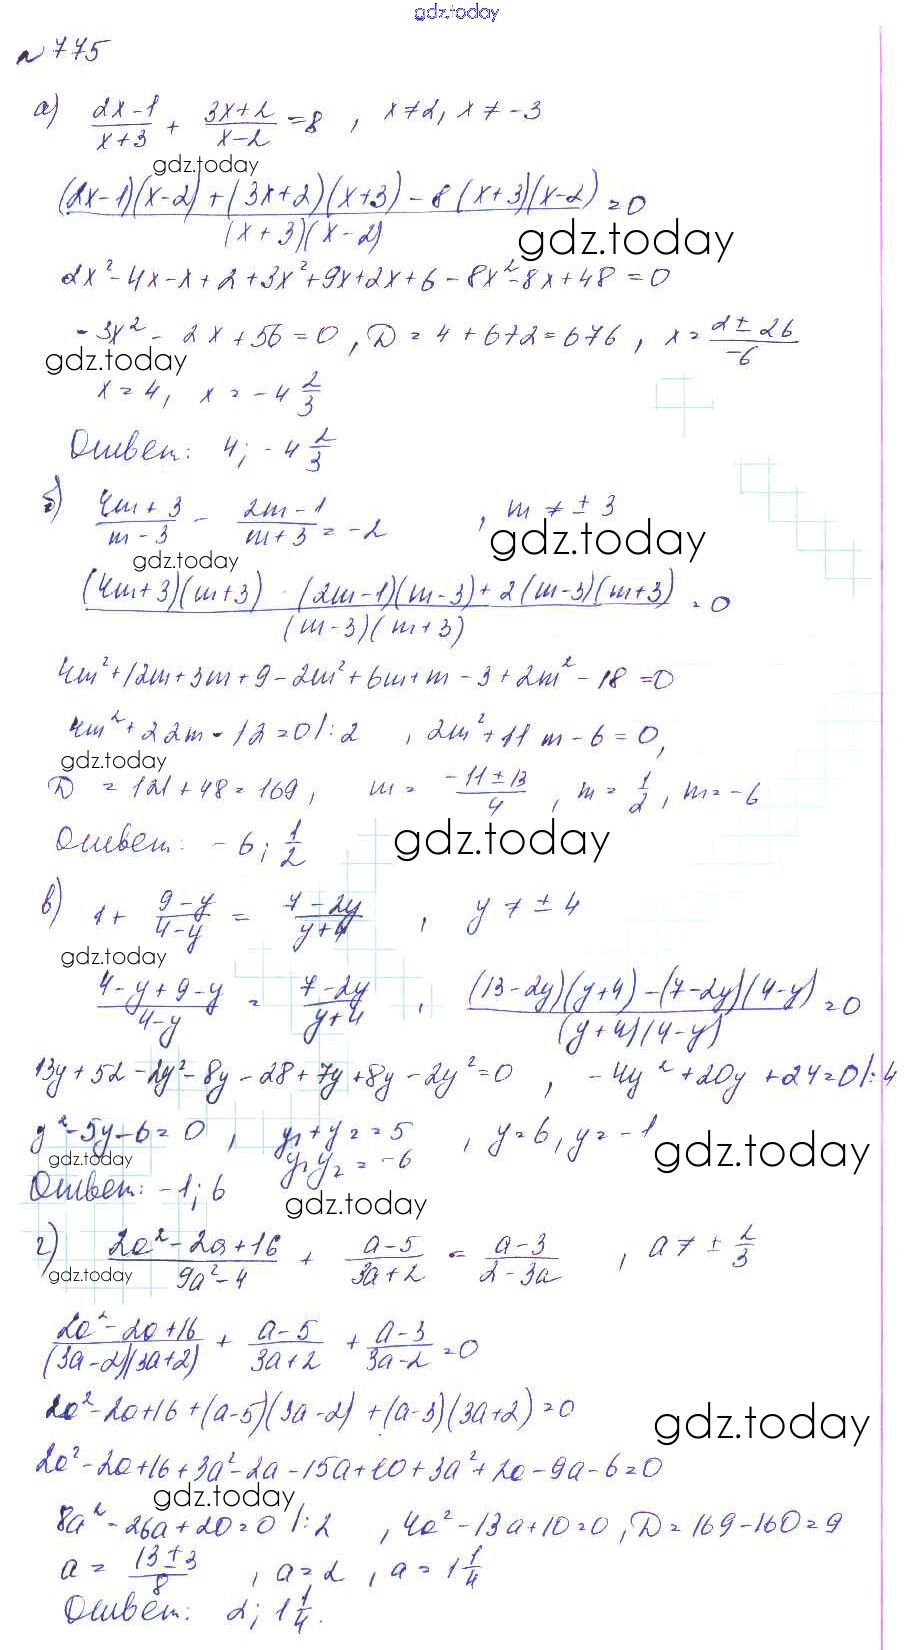 gdz.today
№775
а) (2x-1)/(x+3) + (3x+2)/(x-2) = 8 , x≠2, x≠-3
gdz.today
((2x-1)(x-2)+(3x+2)(x+3)-8(x+3)(x-2))/((x+3)(x-2)) = 0
gdz.today
2x²-4x-x+2+3x²+9x+2x+6-8x²-8x+48=0
-3x²-2x+56=0, D=4+672=676, x=(2±26)/-6
gdz.today
x=4, x=-4 2/3
Ответ: 4; -4 2/3
б) (4m+3)/(m-3) - (2m-1)/(m+3) = -2 , m≠±3
gdz.today
gdz.today
((4m+3)(m+3) - (2m-1)(m-3)+2(m-3)(m+3))/((m-3)(m+3)) = 0
4m²+12m+3m+9-2m²+6m+m-3+2m²-18=0
4m²+22m-12=0 |:2 , 2m²+11m-6=0,
gdz.today
D=121+48=169, m=(-11±13)/4, m=1/2, m=-6
Ответ: -6; 1/2
gdz.today
в) 1+ (9-y)/(4-y) = (7-2y)/(y+4) , y≠±4
gdz.today
(4-y+9-y)/(4-y) = (7-2y)/(y+4) , ((13-2y)(y+4)-(7-2y)(4-y))/((y+4)(4-y)) = 0
13y+52-2y²-8y-28+7y+8y-2y²=0 , -4y²+20y+24=0|:4
y²-5y-6=0 , y₁+y₂=5 , y=6, y=-1
y₁y₂=-6
gdz.today
gdz.today
Ответ: -1; 6
gdz.today
г) (2a²-2a+16)/(9a²-4) + (a-5)/(3a+2) = (a-3)/(2-3a) , a≠±2/3
gdz.today
(2a²-2a+16)/((3a-2)(3a+2)) + (a-5)/(3a+2) + (a-3)/(3a-2) = 0
2a²-2a+16+(a-5)(3a-2)+(a-3)(3a+2)=0
gdz.today
2a²-2a+16+3a²-2a-15a+10+3a²+2a-9a-6=0
gdz.today
8a²-26a+20=0 |:2 , 4a²-13a+10=0, D=169-160=9
a=(13±3)/8 , a=2 , a=1 1/4
Ответ: 2; 1 1/4.